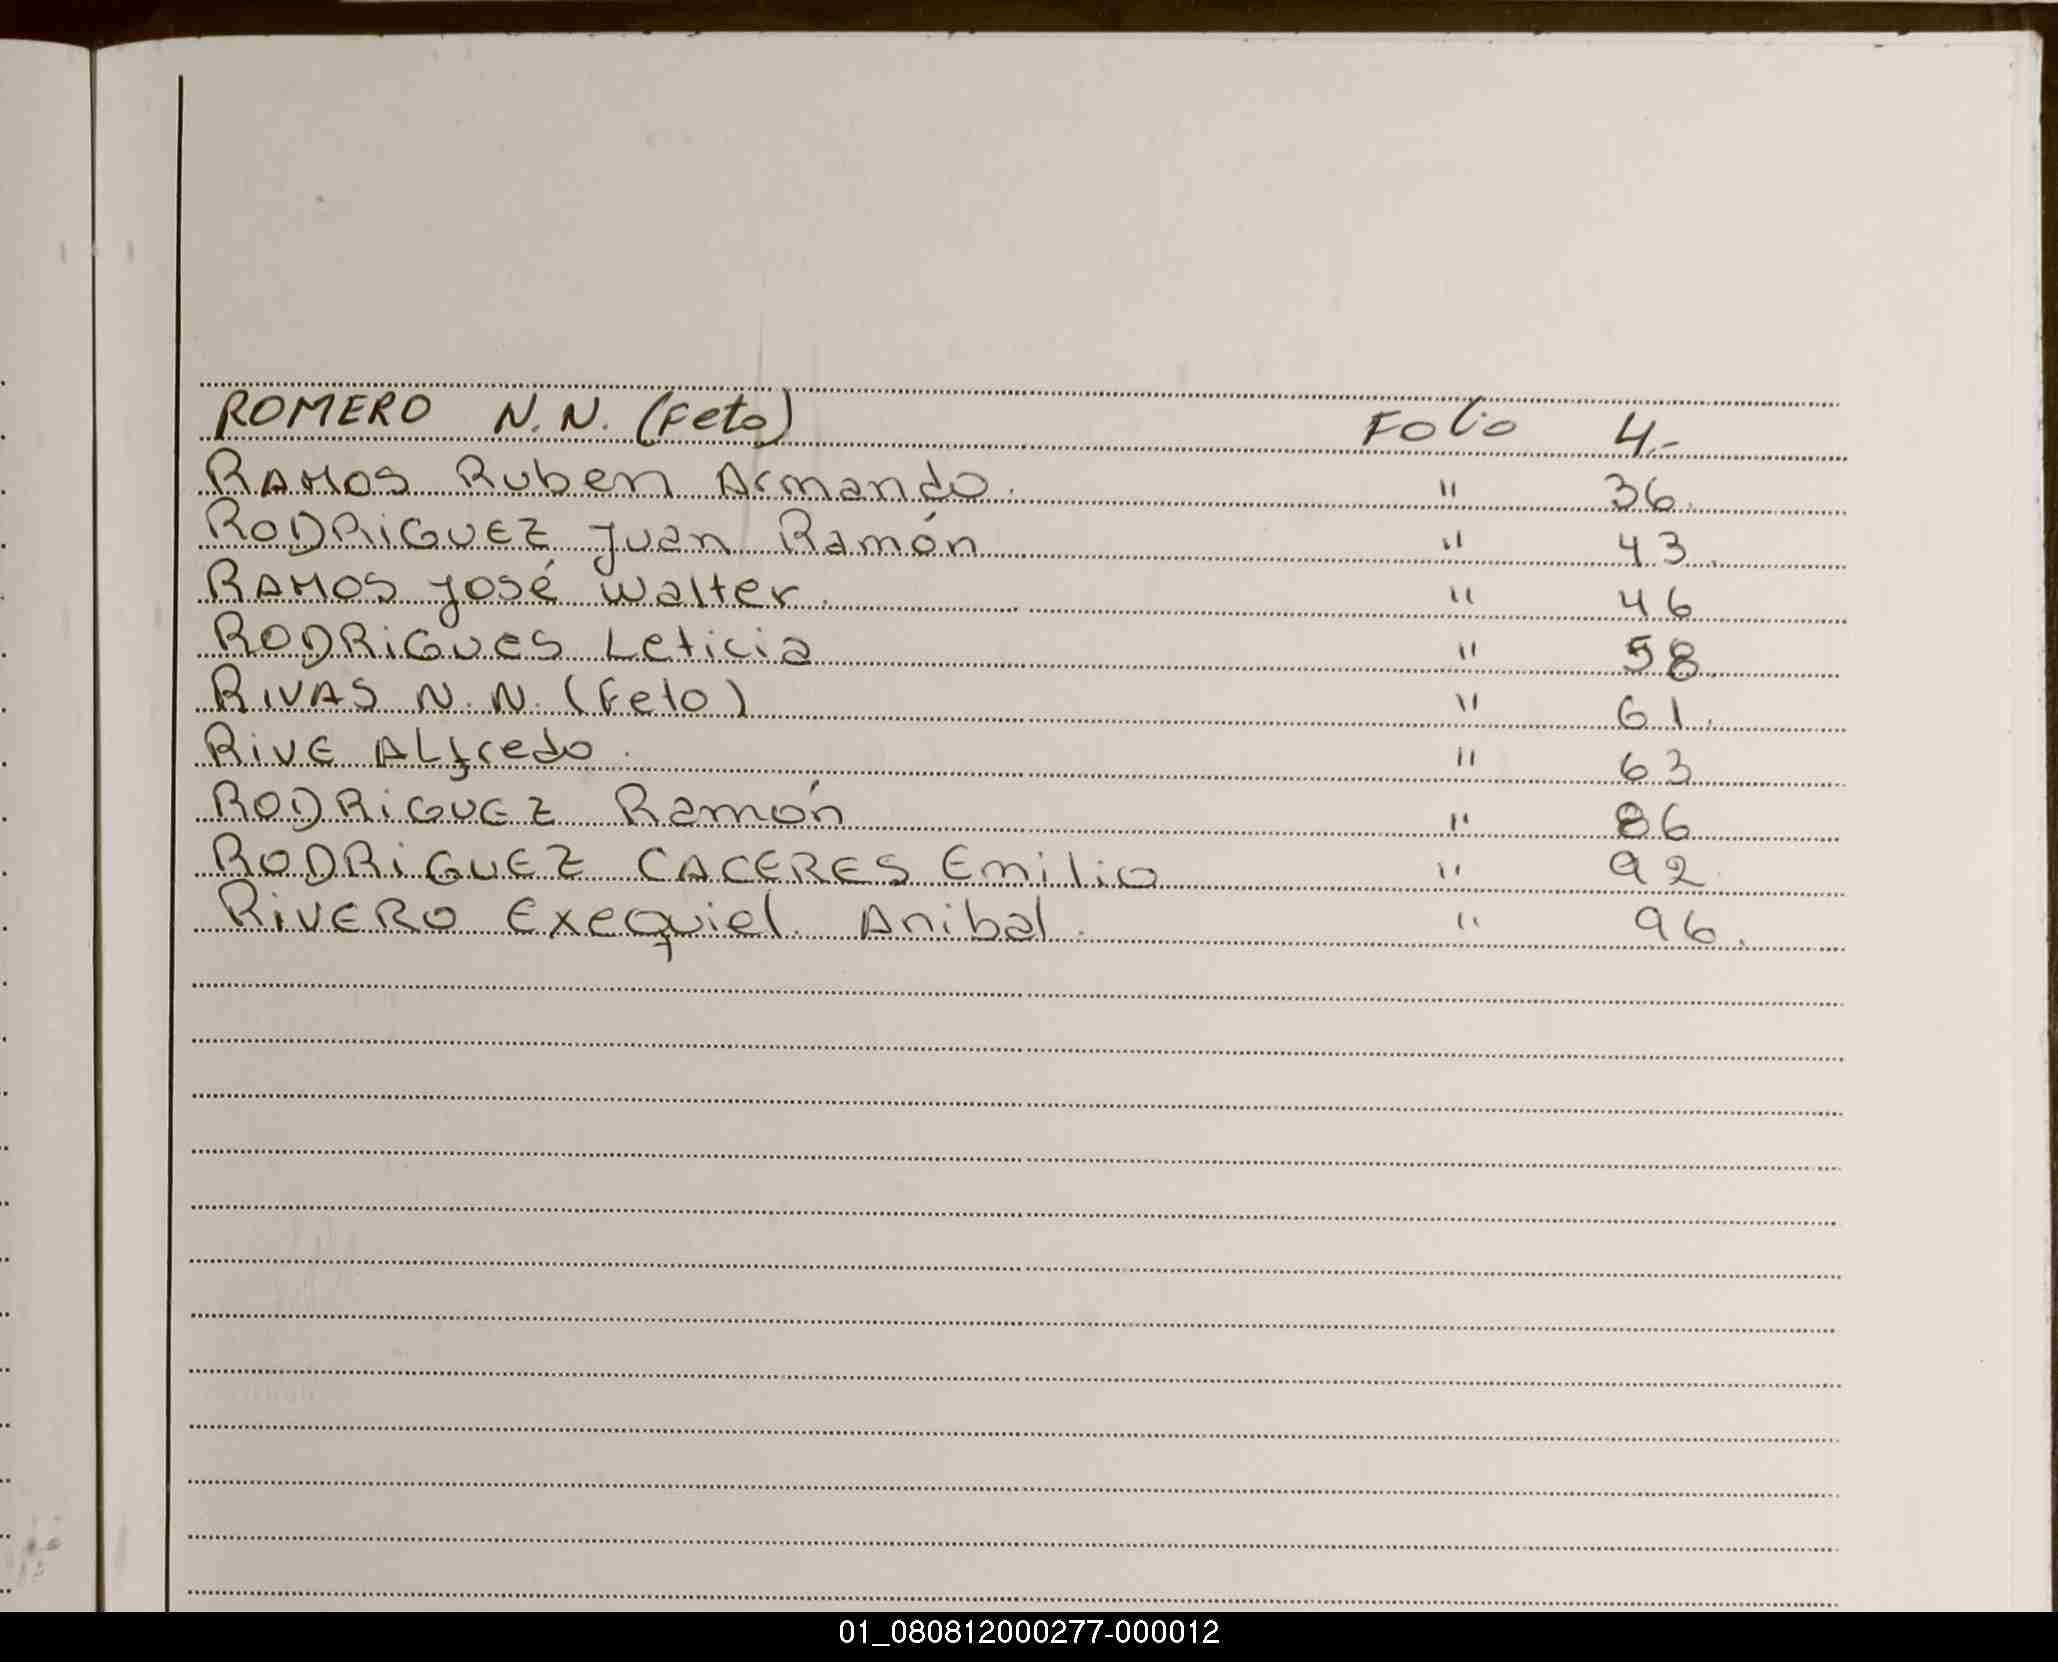 ROMERO N.N. (Feto) Folio 4.-
RAMOS Ruben Armando. " 36.
RODRIGUEZ Juan Ramón " 43.
RAMOS José Walter. " 46
RODRIGUES Leticia " 58.
RIVAS N.N. (Feto) " 61.
RIVE ALfredo. " 63
RODRIGUEZ Ramón " 86
RODRIGUEZ CACERES Emilio " 92.
RIVERO Exequiel Anibal. " 96.
01_080812000277-000012